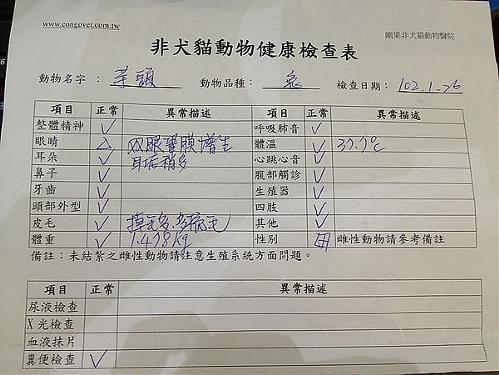 www.congovet.com.tw
剛果非犬貓動物醫院
非犬貓動物健康檢查表
動物名字： 芋頭 動物品種： 兔 檢查日期： 102.1.26
項目 正常 異常描述 項目 正常 異常描述
整體精神 ✓ 呼吸肺音 ✓
眼睛 △ 双眼瞬膜增生 體溫 ✓
耳朵 ✓ 耳垢稍多 心跳心音 ✓
鼻子 ✓ 腹部觸診 ✓
牙齒 ✓ 生殖器 ✓
頭部外型 ✓ 四肢 ✓
皮毛 ✓ 掉毛多,多梳毛 其他 ✓
體重 ✓ 1.498kg 性別 雌性動物請參考備註
備註：未結紮之雌性動物請注意生殖系統方面問題。
項目 正常 異常描述
尿液檢查
X光檢查
血液抹片
糞便檢查 ✓